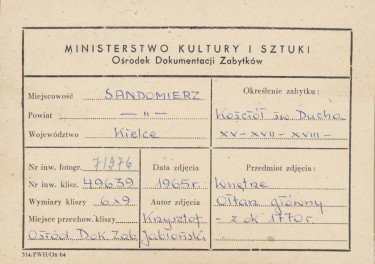 MINISTERSTWO KULTURY I SZTUKI
Ośrodek Dokumentacji Zabytków
Miejscowość SANDOMIERZ
Powiat — " —
Województwo Kielce
Określenie zabytku:
Kościół św. Ducha
XV – XVII – XVIII –
Nr inw. fotogr. 7/976
Nr inw. klisz. 49639
Wymiary kliszy 6×9
Miejsce przechow. kliszy
Ośród. Dok. Zab.
Data zdjęcia
1965 r.
Autor zdjęcia
Krzysztof
Jabłoński
Przedmiot zdjęcia:
Wnętrze
Ołtarz główny
– z ok 1770 r.